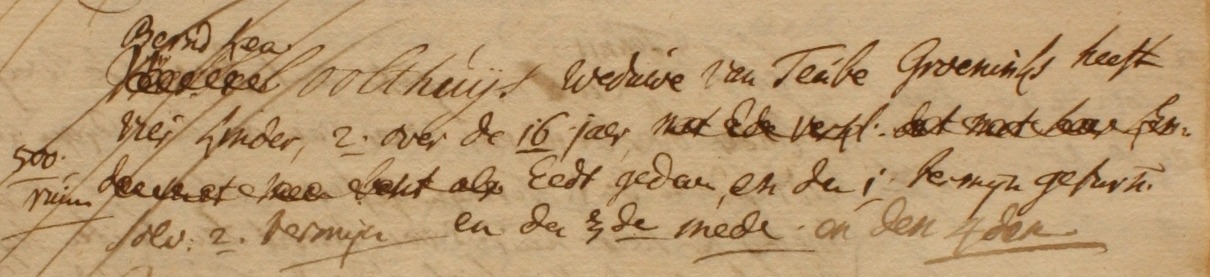 Berndkea
Volthuijs weduwe van Teube Groenincks heeft
vier kinder, 2. over de 16 jaer, met Ede verkl. dat met haer
500.
ruim Eedt gedaen, en den 1. termijn gefurn.
solv. 2. termijn en de 3de mede. en den 4den